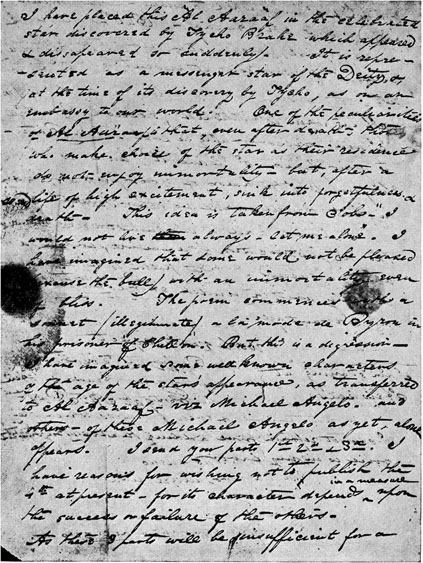 I have placed this Al Aaraaf in the celebrated
star discovered by Tycho Brahe which appeared
& disappeared so suddenly. It is repre-
-sented as a messenger star of the Deity, &,
at the time of its discovery by Tycho, as on an
embassy to our world. One of the peculiarities
of Al Aaraaf is that, even after death, those
who make choice of the star as their residence
do not enjoy immortality - but, after a
second life of high excitement, sink into forgetfulness, &
death - This idea is taken from Job - "I
would not live always - let me alone". I
have imagined that some would not be pleased
excuse the bull) with an immortality even
this. The poem commences with a
sonnet (illegitimate) a la mode de Byron in
his prisoner of Chillon. But this is a digression -
I have imagined some well known characters
of the age of the star's appearance, as transferred
to Al Aaraaf - viz Michael Angelo - and
others - of these Michael Angelo as yet, alone
appears. I send you parts 1st 2d & 3d. I
have reasons for wishing not to publish the
4th at present - for its character depends in a measure upon
the success or failure of the others -
As these 3 parts will be insufficient for a